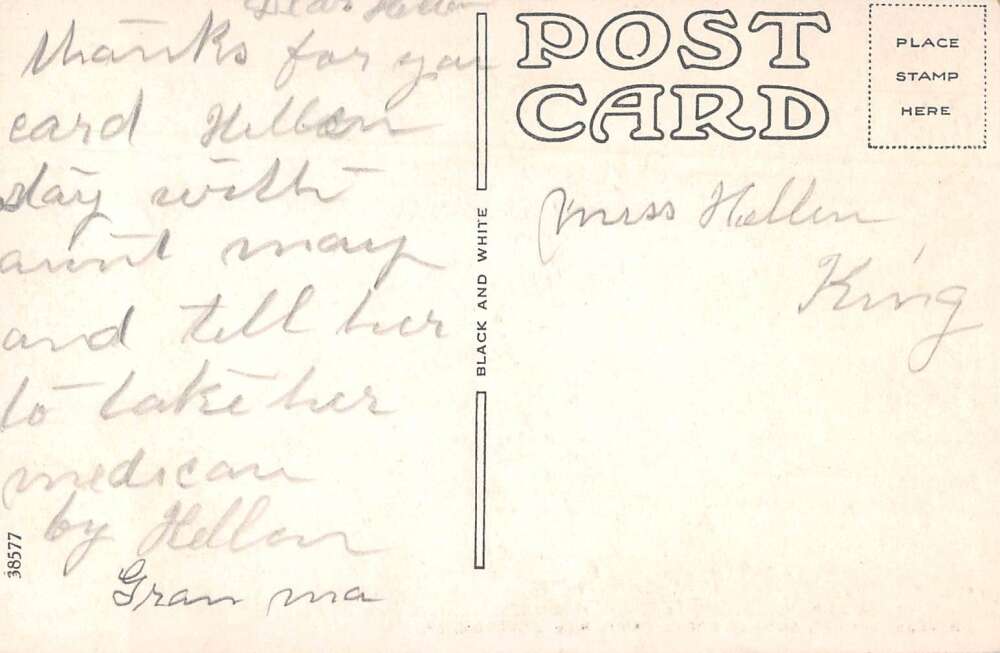 Dear Hellen
thanks for you
card Hellen
stay with
aunt may
and tell her
to take her
medican
by Hellen
Gran ma
38577
BLACK AND WHITE
POST
CARD
PLACE
STAMP
HERE
miss Hellen
King